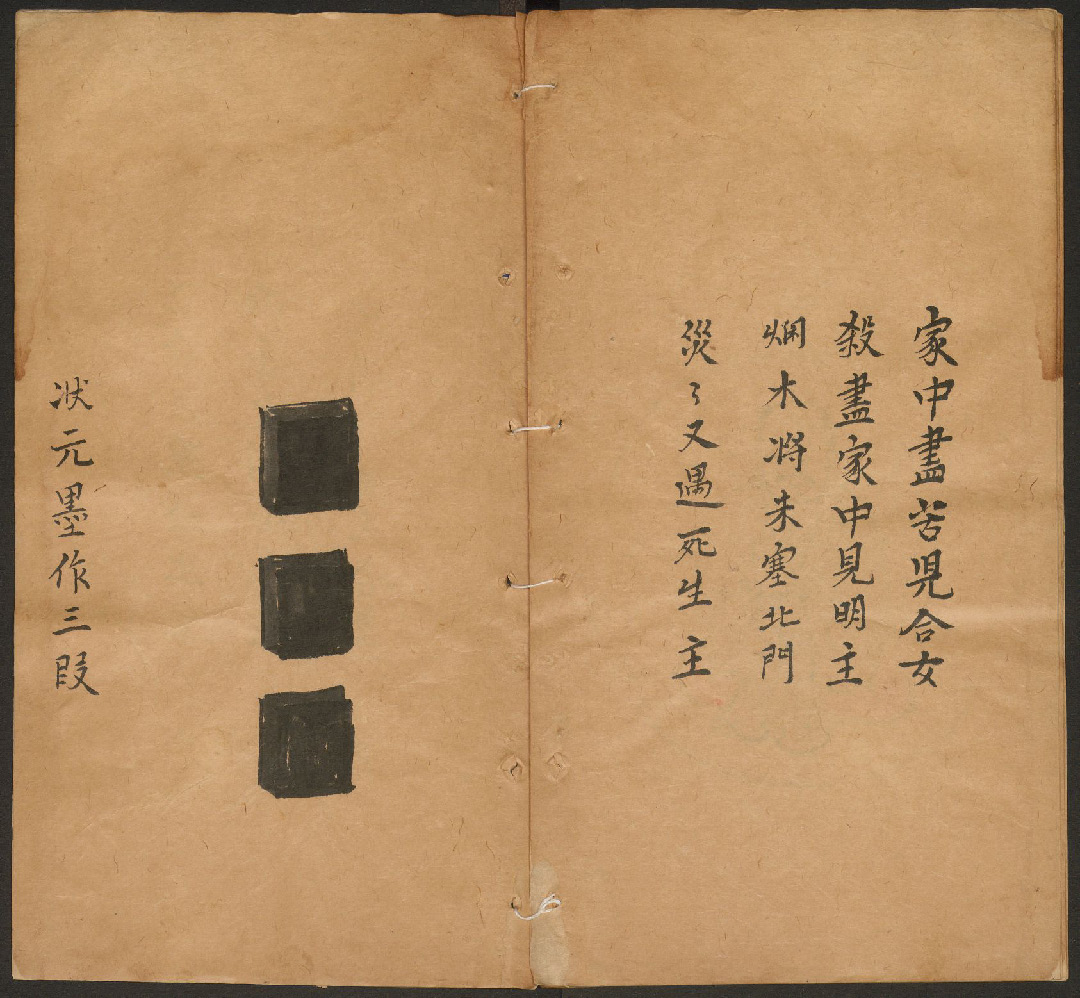 家中盡苦児合女
殺盡家中見明主
爛木將未塞北門
災〻又遇死生主
狀元墨作三段